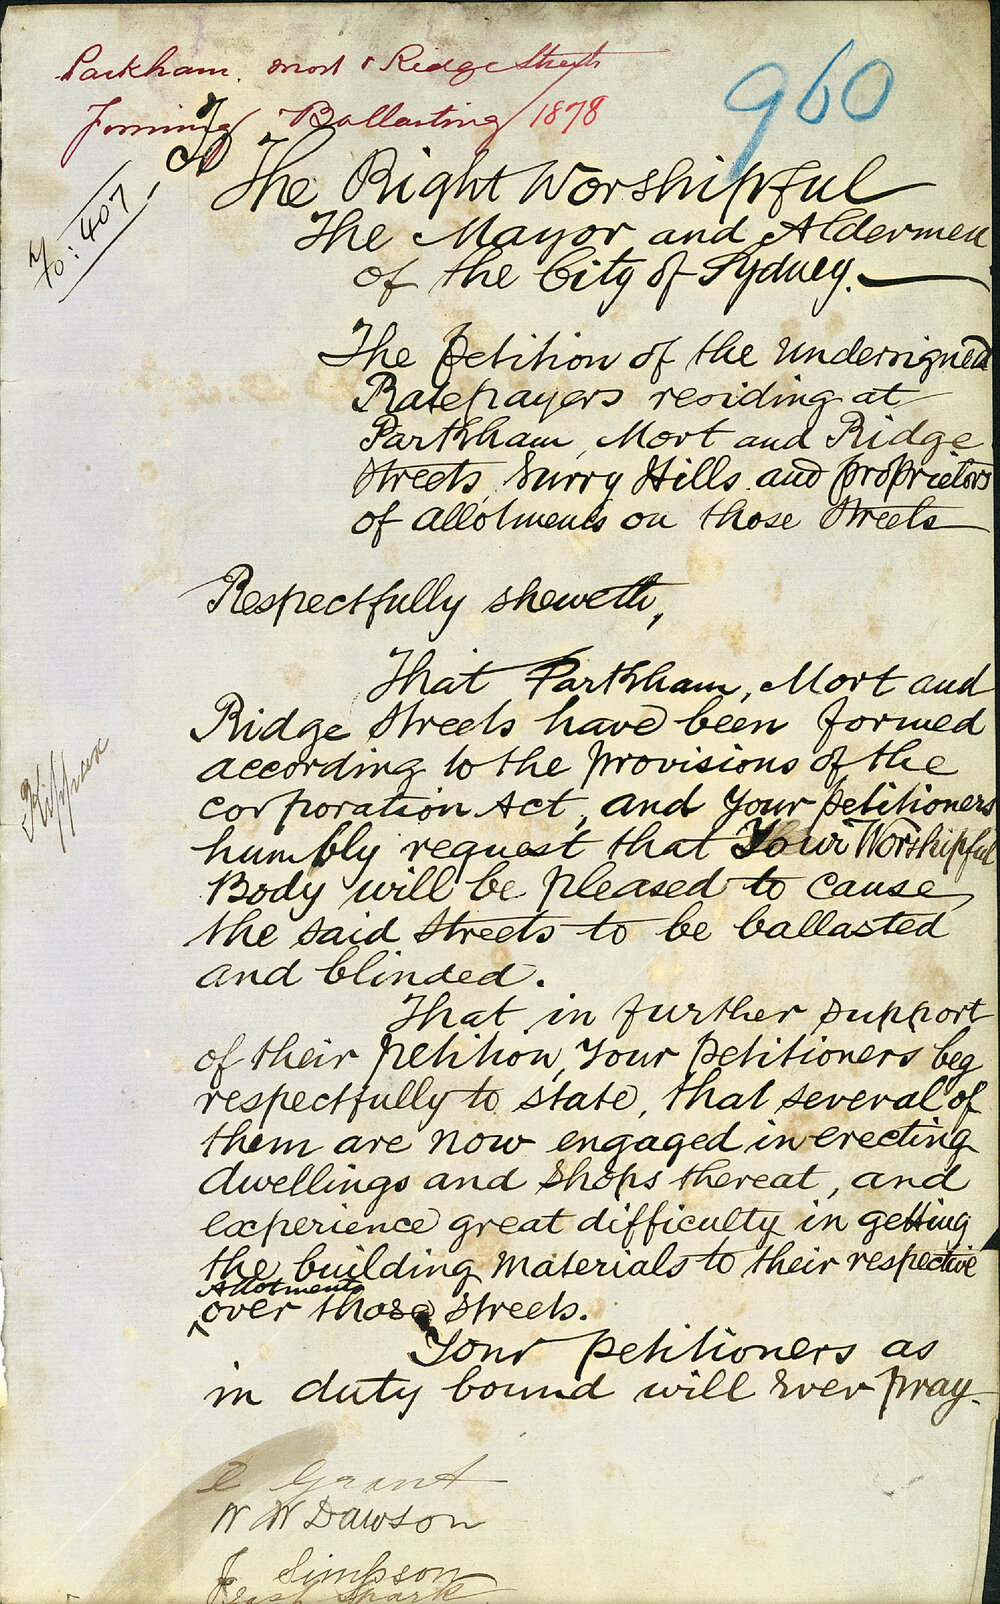 Parkham, Mort & Ridge Streets
Forming / Ballasting / 1878
960
No: 407
To
The Right Worshipful
The Mayor and Aldermen
of the City of Sydney.
The Petition of the undersigned
Ratepayers residing at
Parkham, Mort and Ridge
Streets, Surry Hills and proprietors
of allotments on those Streets
Respectfully sheweth,
That Parkham, Mort and
Ridge Streets have been formed
according to the provisions of the
corporation Act, and Your petitioners
humbly request that Your Worshipful
Body will be pleased to cause
the said Streets to be ballasted
and blinded.
That in further support
of their petition, Your petitioners beg
respectfully to state, that several of
them are now engaged in erecting
dwellings and Shops thereat, and
experience great difficulty in getting
the building materials to their respective
Allotments
over those Streets.
Your petitioners as
in duty bound will Ever pray.
Grant
W W Dawson
J Simpson